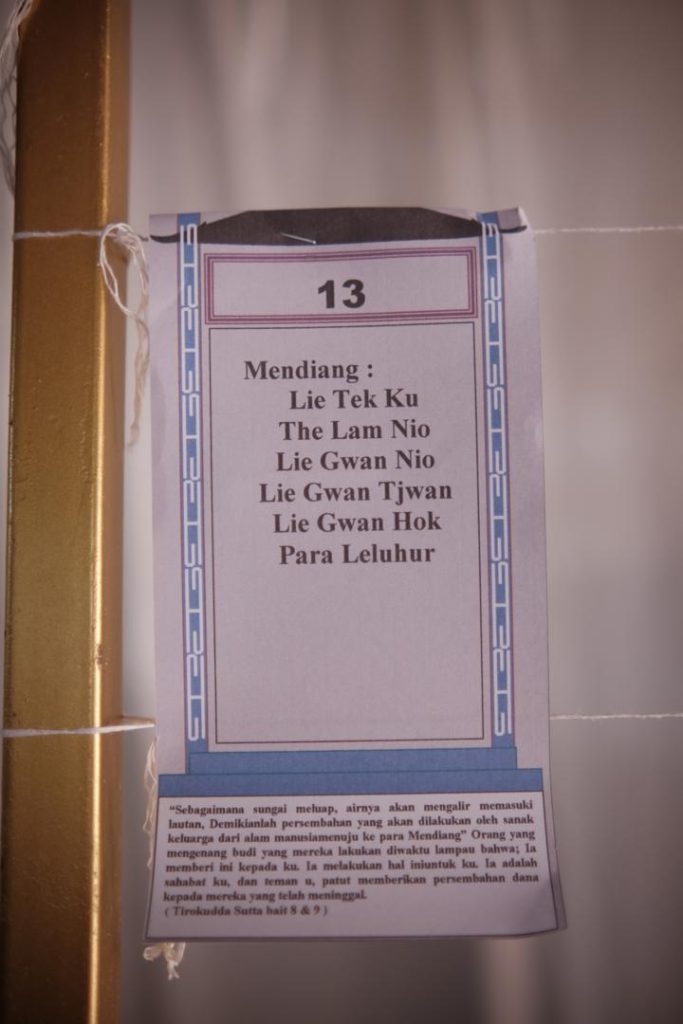 13
Mendiang :
Lie Tek Ku
The Lam Nio
Lie Gwan Nio
Lie Gwan Tjwan
Lie Gwan Hok
Para Leluhur
"Sebagaimana sungai meluap, airnya akan mengalir memasuki
lautan, Demikianlah persembahan yang akan dilakukan oleh sanak
keluarga dari alam manusiamenuju ke para Mendiang" Orang yang
mengenang budi yang mereka lakukan diwaktu lampau bahwa; Ia
memberi ini kepada ku. Ia melakukan hal iniuntuk ku. Ia adalah
sahabat ku, dan teman u, patut memberikan persembahan dana
kepada mereka yang telah meninggal.
( Tirokudda Sutta bait 8 & 9 )